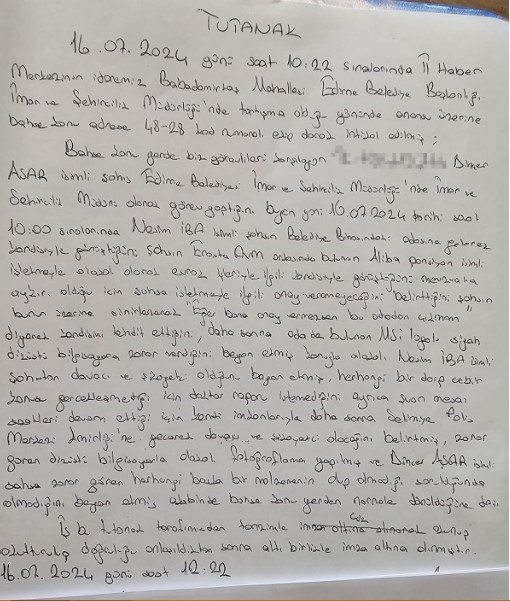 TUTANAK
16.07.2024 günü saat 10:22 sıralarında İl Haber
Merkezinin idaremiz Babademirtaş Mahallesi Edirne Belediye Başkanlığı
İmar ve Şehircilik Müdürlüğü'nde tartışma olduğu yönünde anons üzerine
bahse konu adrese 48-28 kod numaralı ekip olarak intikal edilmiş;
Bahse konu yerde bizi görevlileri karşılayan Dincer
ASAR isimli şahıs Edirne Belediyesi İmar ve Şehircilik Müdürlüğü'nde İmar ve
Şehircilik Müdürü olarak görev yaptığını beyan 16.07.2024 tarihi saat
10:00 sıralarında Nesim İBA isimli şahsın Belediye Binasındaki odasına gelerek
kendisiyle görüştüğünü şahsın Erasta Avm arkasında bulunan pansiyon isimli
işletmeyle alakalı olarak evrak işleriyle ilgili kendisiyle görüştüğünü mevzuata
aykırı olduğu için şahsa işletmeyle ilgili onay veremeyeceğini belirttiğini şahsın
bunun üzerine sinirlenerek "Eğer bana onay vermezsen bu odadan çıkmam"
diyerek kendisini tehdit ettiğini, daha sonra odada bulunan MSİ logolu siyah
dizüstü bilgisayara zarar verdiğini beyan etmiş konuyla alakalı Nesim İBA isimli
şahıstan davacı ve şikayetçi olduğunu beyan etmiş, herhangi bir darp cebir
gerçekleşmediği için doktor raporu istemediğini ayrıca şuan mesai
saatleri devam ettiği için kendi imkanlarıyla daha sonra Selimiye Polis
Merkezi Amirliği'ne geçerek davacı ve şikayetçi olacağını belirtmiş, zarar
gören dizüstü bilgisayarla alakalı fotoğraflama yapılmış ve Dincer ASAR isimli
şahsa zarar gören herhangi başka bir malzemenin olup olmadığı sorulduğunda
olmadığını beyan etmiş akabinde bahse konu yerden normale dönüldüğüne dair
İş bu tutanak tarafımızdan tanzimle imza altına alınarak
okutturulup doğruluğu anlaşıldıktan sonra altı birlikte imza altına alınmıştır.
16.07.2024 günü saat 12:22